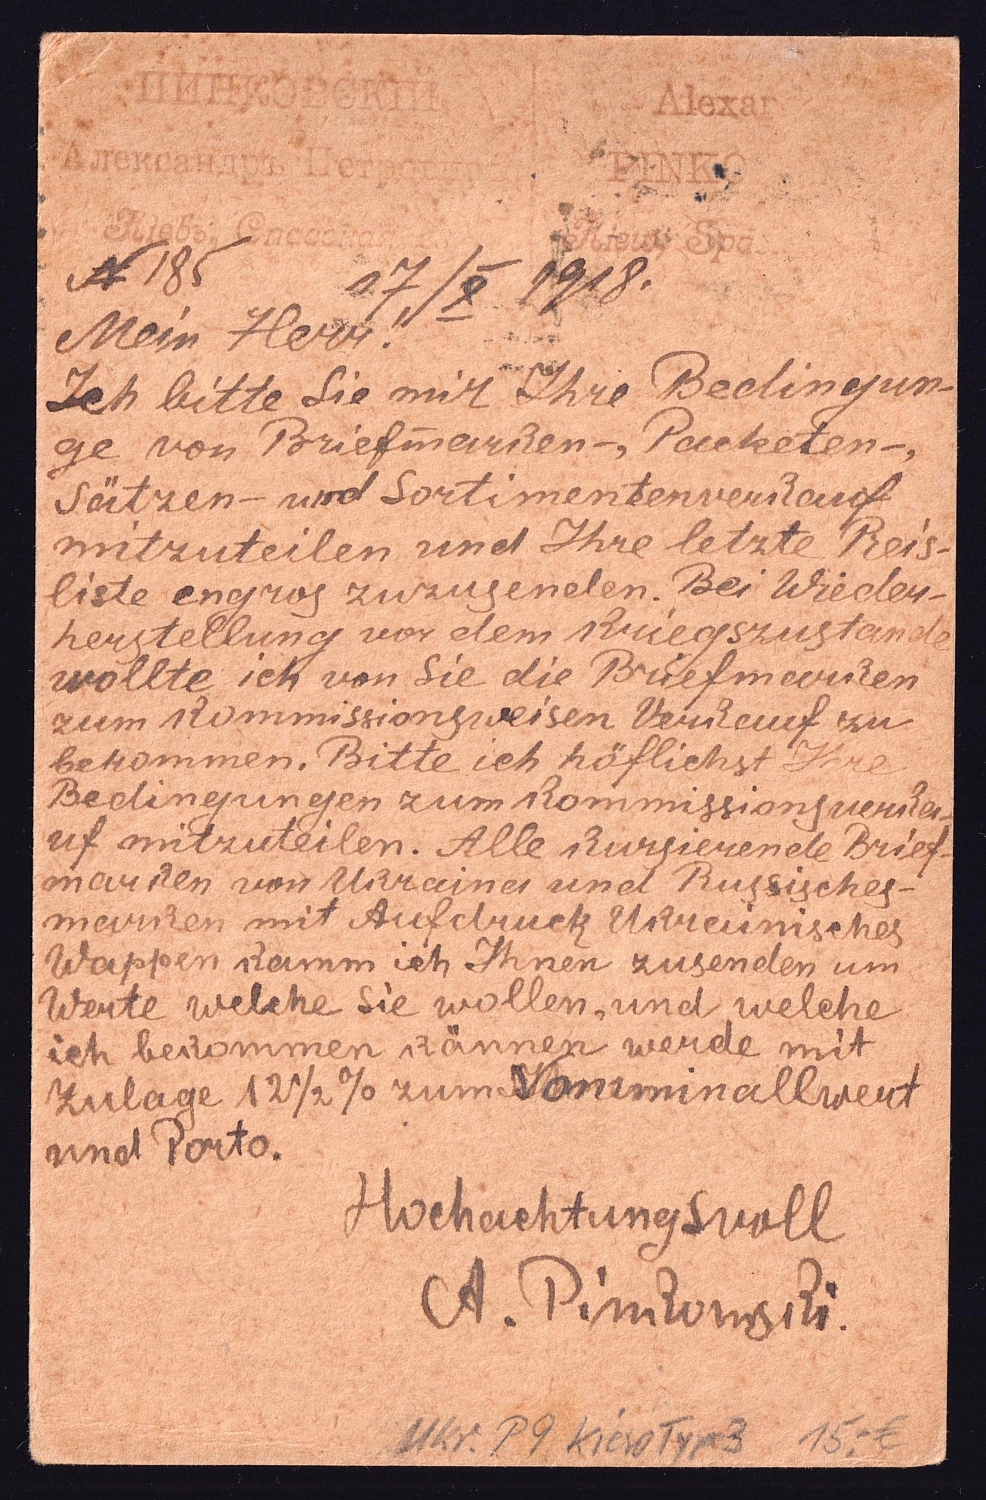 ПИНКОВСКІЙ
Александръ Петровичъ
Кіевъ, Спасская
Alexan
PINKO
Kiew, Spa
№ 185 17/X 1918.
Mein Herr!
Ich bitte Sie mir Ihre Bedingun-
ge von Briefmarken-, Packeten-,
Sätzen- und Sortimentenverkauf
mitzuteilen und Ihre letzte Reis-
liste engros zuzusenden. Bei Wieder-
herstellung vor dem Kriegszustande
wollte ich von Sie die Briefmarken
zum Kommissionsweisen Verkauf zu
bekommen. Bitte ich höflichst Ihre
Bedingungen zum Kommissionsverka-
uf mitzuteilen. Alle kursierende Brief-
marken von Ukraina und Russisches-
marken mit Aufdruck Ukrainisches
Wappen kann ich Ihnen zusenden um
Werte welche Sie wollen, und welche
ich bekommen kännen werde mit
Zulage 12½% zum Nomminallwert
und Porto.
Hochachtungsvoll
A. Pinkowski.
Ukr. P9 Kiew Typ 3 15,- €